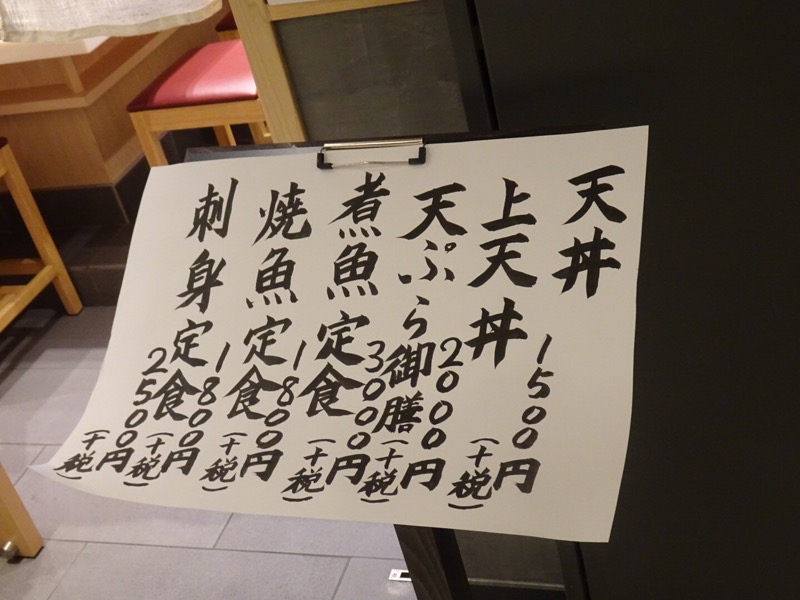 天丼 1500円(+税)
上天丼 2000円(+税)
天ぷら御膳 3000円(+税)
煮魚定食 1800円(+税)
焼魚定食 1800円(+税)
刺身定食 2500円(+税)